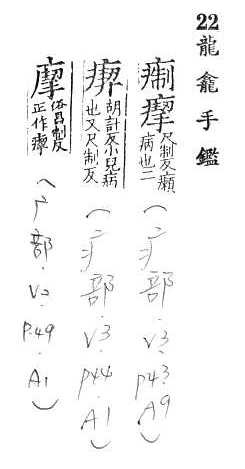 22 龍龕手鑑
痸 尺制反癲
病也二
(疒部.V3.P43.A9)
胡計反小兒病
也又尺制反
(疒部.V3.P44.A1)
俗昌制反
正作
(广部.V2.P.49.A1)